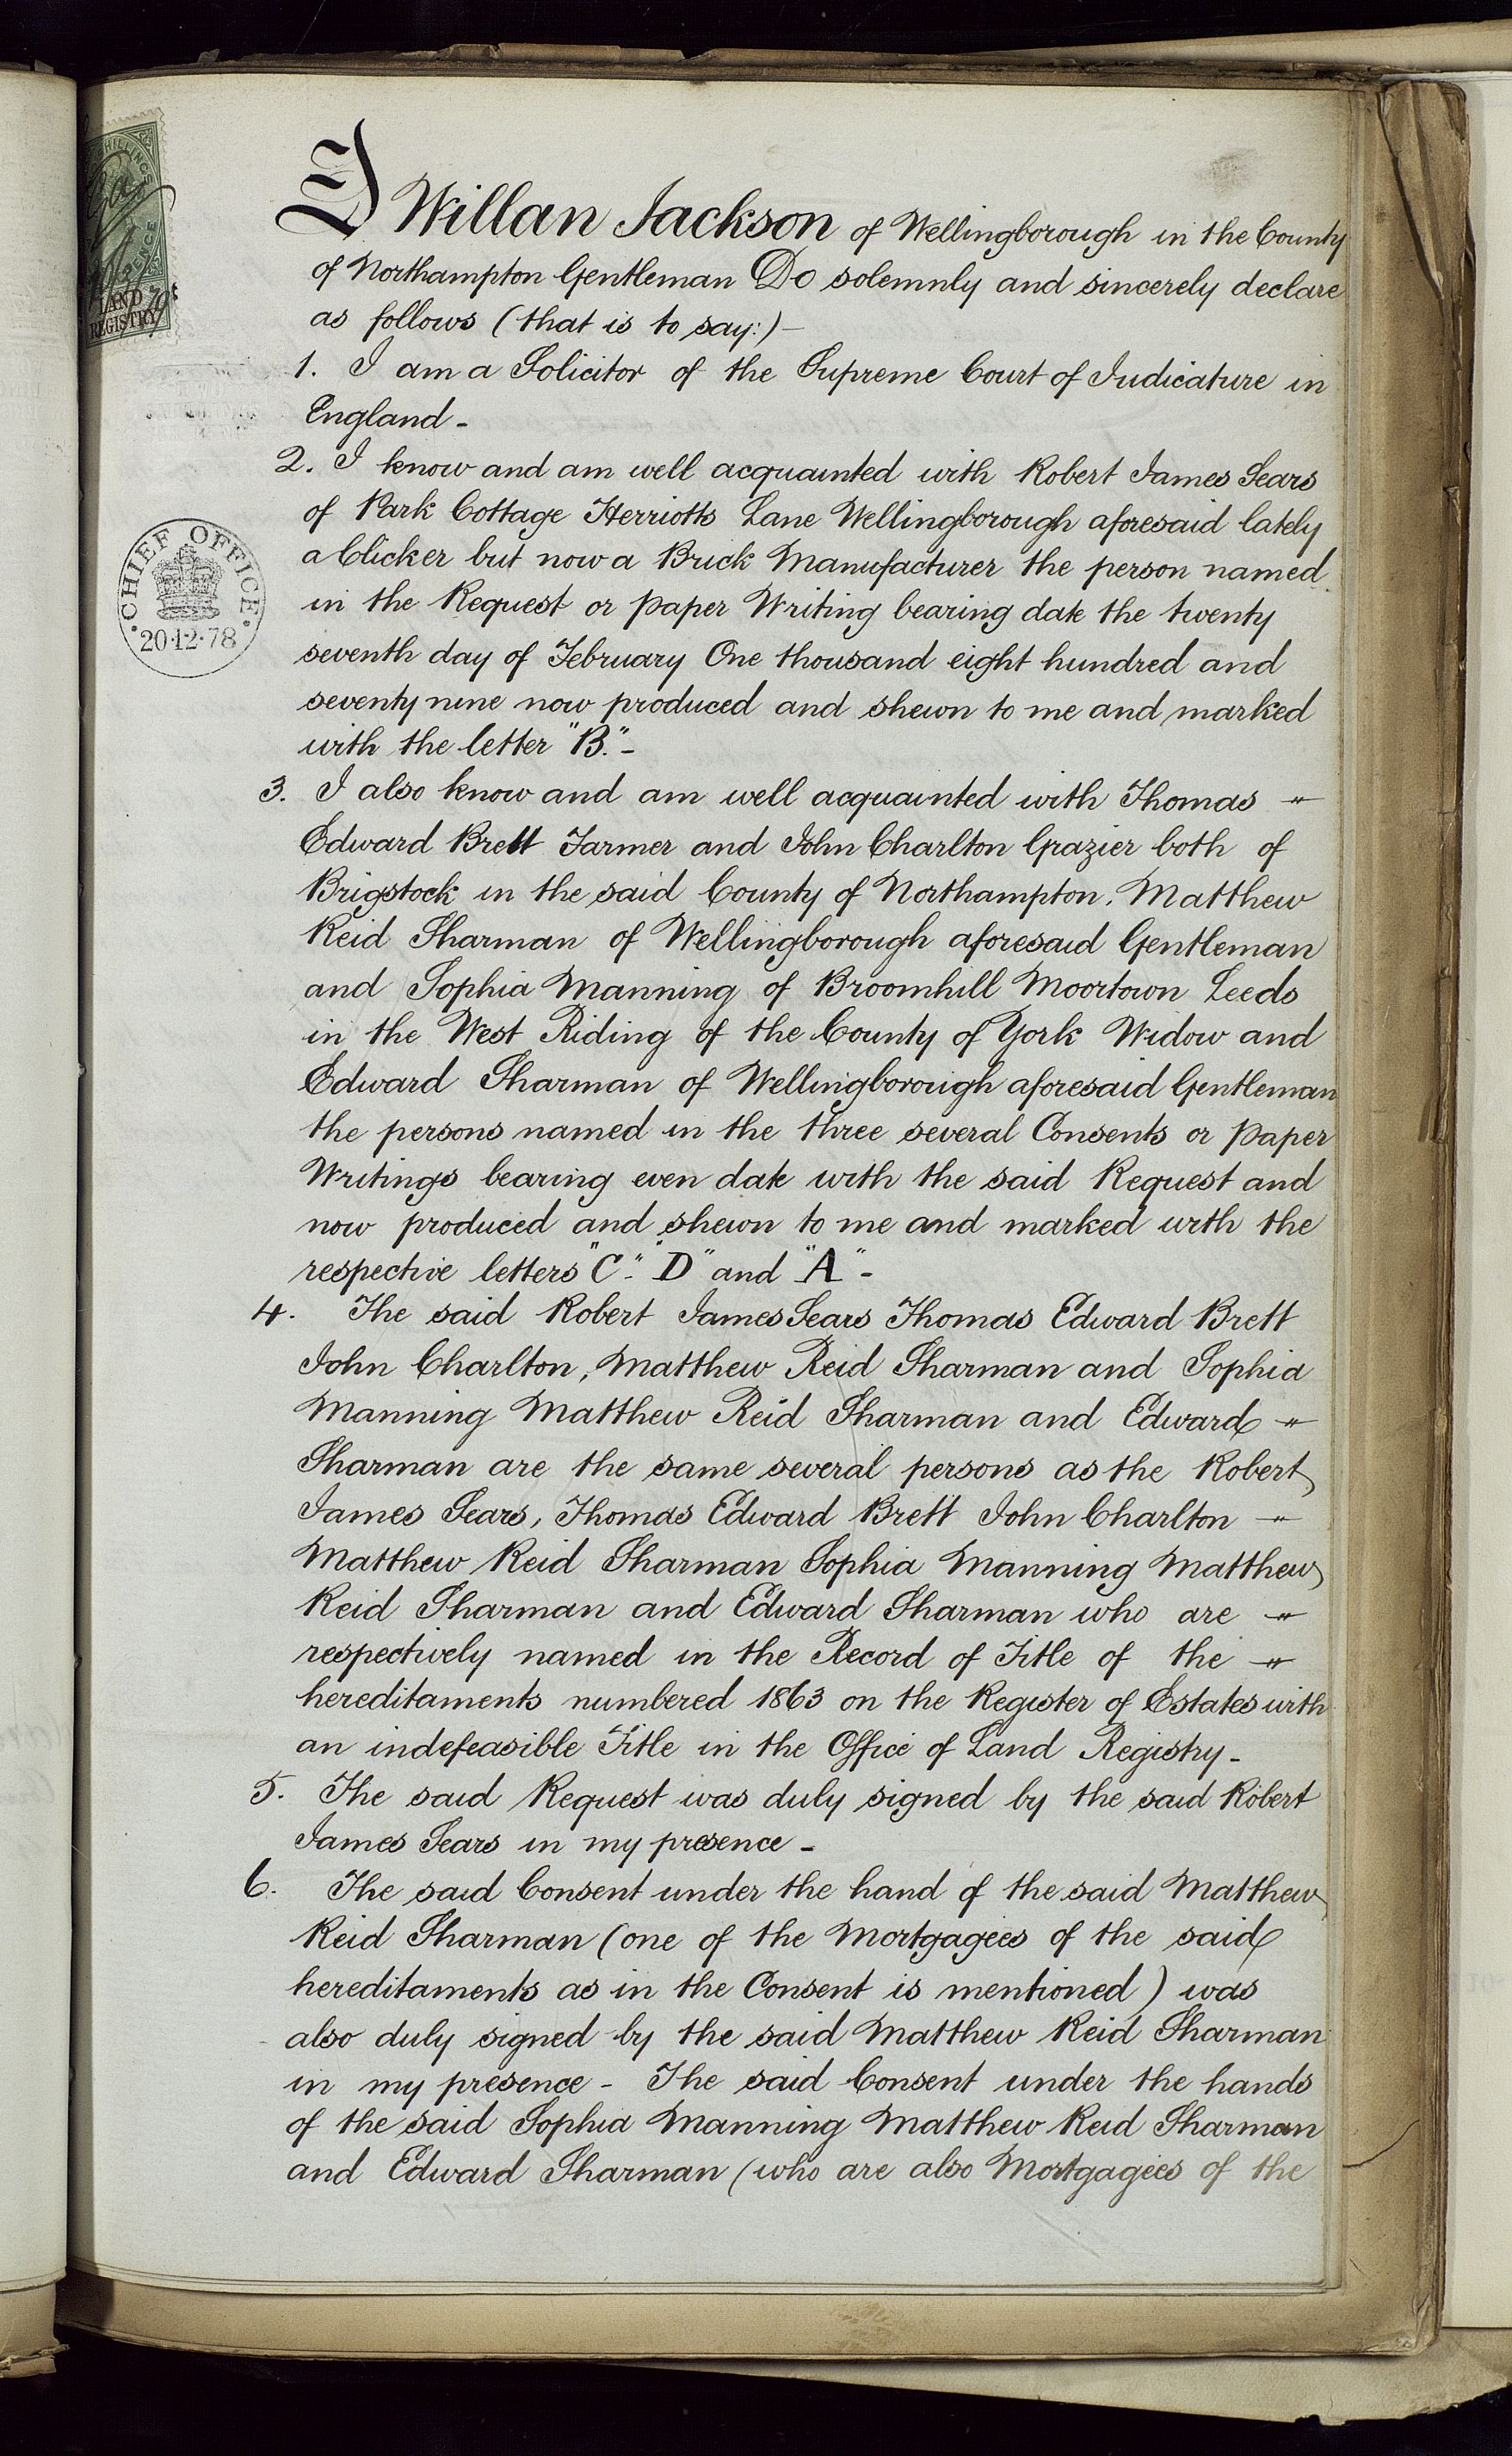 SHILLINGS
PENCE
LAND
REGISTRY
I Willan Jackson of Wellingborough in the County
of Northampton Gentleman Do solemnly and sincerely declare
as follows (that is to say:)—
1. I am a Solicitor of the Supreme Court of Judicature in
England -
2. I know and am well acquainted with Robert James Sears
of Park Cottage Herriotts Lane Wellingborough aforesaid lately
a Clicker but now a Brick Manufacturer the person named
in the Request or paper Writing bearing date the twenty
seventh day of February One thousand eight hundred and
seventy nine now produced and shewn to me and marked
with the letter "B." -
CHIEF OFFICE
20·12·78
3. I also know and am well acquainted with Thomas
Edward Brett Farmer and John Charlton Grazier both of
Brigstock in the said County of Northampton. Matthew
Reid Sharman of Wellingborough aforesaid Gentleman
and Sophia Manning of Broomhill Moortown Leeds
in the West Riding of the County of York Widow and
Edward Sharman of Wellingborough aforesaid Gentleman
the persons named in the three several Consents or paper
Writings bearing even date with the said Request and
now produced and shewn to me and marked with the
respective letters "C" "D" and "A" -
4. The said Robert James Sears Thomas Edward Brett
John Charlton, Matthew Reid Sharman and Sophia
Manning Matthew Reid Sharman and Edward
Sharman are the same several persons as the Robert
James Sears, Thomas Edward Brett John Charlton
Matthew Reid Sharman Sophia Manning Matthew
Reid Sharman and Edward Sharman who are
respectively named in the Record of Title of the
hereditaments numbered 1863 on the Register of Estates with
an indefeasible Title in the Office of Land Registry -
5. The said Request was duly signed by the said Robert
James Sears in my presence -
6. The said Consent under the hand of the said Matthew
Reid Sharman (one of the Mortgagees of the said
hereditaments as in the Consent is mentioned) was
also duly signed by the said Matthew Reid Sharman
in my presence - The said Consent under the hands
of the said Sophia Manning Matthew Reid Sharman
and Edward Sharman (who are also Mortgagees of the